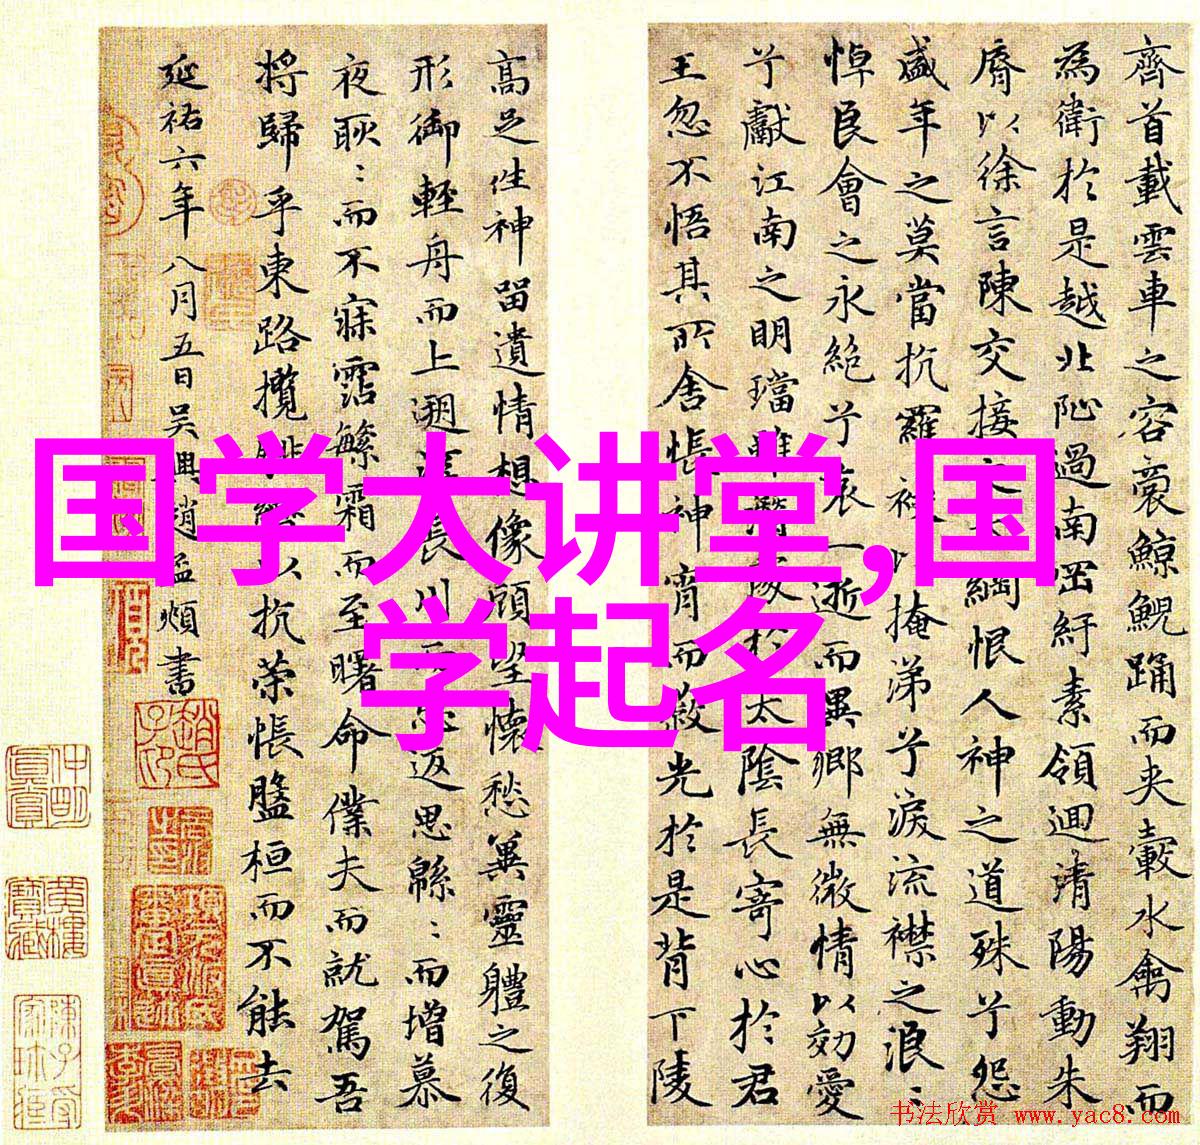 齊首載雲車之容裔鯨鯢踊而夾轂水禽翔而
為衛於是越北沚過南岡紆素領迴清陽動朱
脣以徐言陳交接綱恨人神之道殊兮怨
盛年之莫當抗羅袂以掩涕兮淚流襟之浪〻
悼良會之永絕兮哀一逝而異鄉無微情以効愛
兮獻江南之明璫雖潛處於太陰長寄心於君
王忽不悟其所舍悵神宵而蔽光於是背下陵
高足往神留遺情想像顧望懷愁冀靈體之復
形御輕舟而上遡浮長川而忘返思緜〻而增慕
夜耿〻而不寐霑繁霜而至曙命僕夫而就駕吾
將歸乎東路攬騑轡以抗策悵盤桓而不能去
延祐六年八月五日吳興趙孟頫書
国学大讲堂,国
学起名
书法欣赏 www.yac8.com